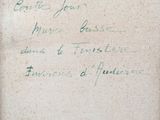 Contre Jour
Marée basse
dans le Finistère
Environs d'Audierne